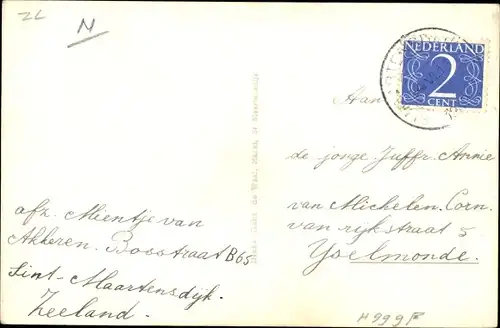 ZL
N
NEDERLAND
2
CENT
Aan
de jonge Juffr. Annie
van Michelen. Corn.
van rijkstraat 5
Yselmonde.
afz. Mientje van
Akkeren. Bosstraat B65
Sint-Maartensdijk.
Zeeland.
H999F